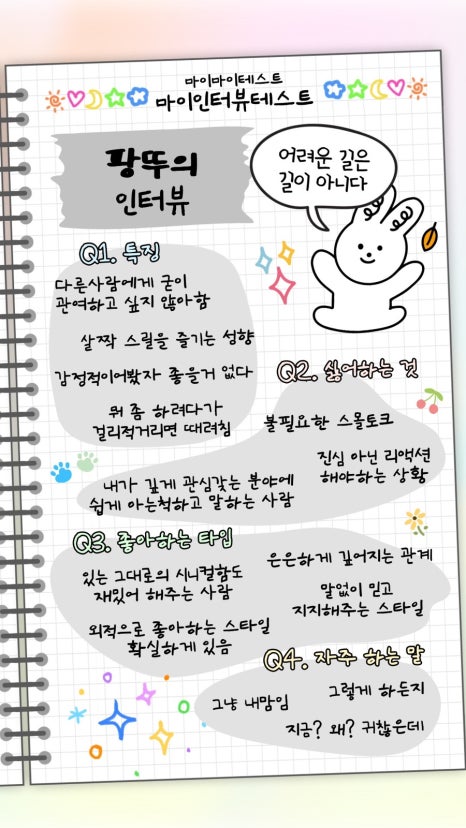 마이마이테스트
마이인터뷰테스트
팡뚜의
인터뷰
어려운 길은
길이 아니다
Q1. 특징
다른사람에게 굳이
관여하고 싶지 않아함
살짝 스릴을 즐기는 성향
감정적이어봤자 좋을거 없다
뭐 좀 하려다가
걸리적거리면 때려침
Q2. 싫어하는 것
불필요한 스몰토크
진심 아닌 리액션
해야하는 상황
내가 깊게 관심갖는 분야에
쉽게 아는척하고 말하는 사람
Q3. 좋아하는 타입
은은하게 깊어지는 관계
있는 그대로의 시니컬함도
재밌어 해주는 사람
말없이 믿고
지지해주는 스타일
외적으로 좋아하는 스타일
확실하게 있음
Q4. 자주 하는 말
그냥 내맘임
그렇게 하든지
지금? 왜? 귀찮은데